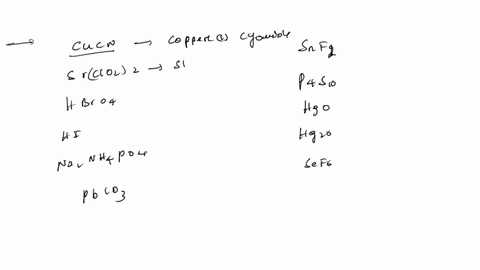 → CuCN → Copper(I) Cyanide
Sr(ClO2)2 → St
HBrO4
HI
Na2NH4PO4
PbCO3
SnF2
P4S10
HgO
Hg2O
SeF6